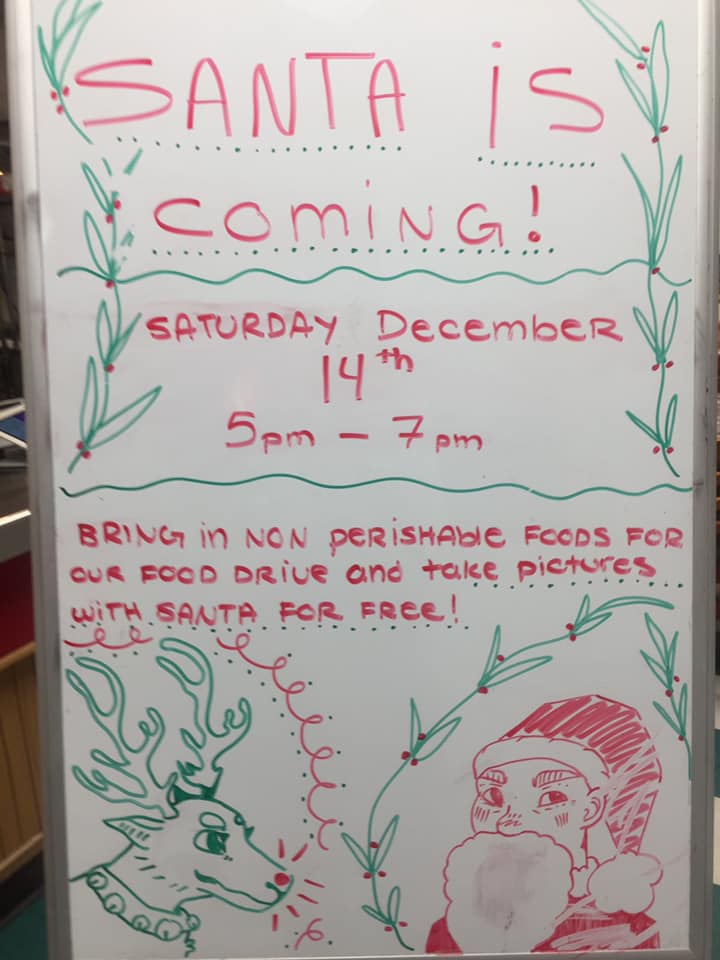 SANTA iS
COMiNG!
SATURDAY DecembeR
14th
5pm - 7pm
BRING in NON PERiSHAble FOODS FOR
OUR FOOD DRIVE and take pictures
WiTH SANTA FOR FREE!